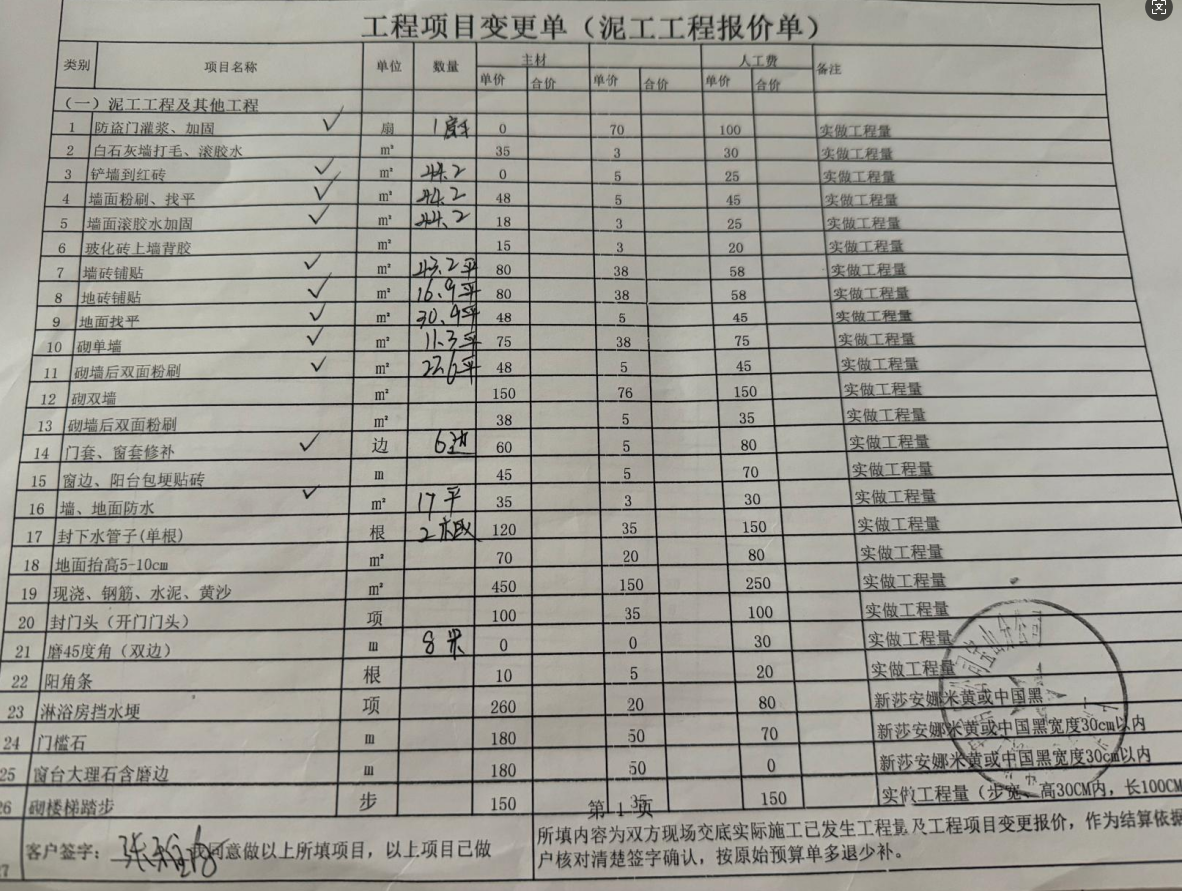 工程项目变更单（泥工工程报价单）
类别 项目名称 单位 数量 主材 人工费 备注
单价 合价 单价 合价 单价 合价
（一）泥工工程及其他工程
1 防盗门灌浆、加固 ✓ 扇 1扇 0 70 100 实做工程量
2 白石灰墙打毛、滚胶水 m² 35 3 30 实做工程量
3 铲墙到红砖 ✓ m² 44.2 0 5 25 实做工程量
4 墙面粉刷、找平 ✓ m² 44.2 48 5 45 实做工程量
5 墙面滚胶水加固 ✓ m² 44.2 18 3 25 实做工程量
6 玻化砖上墙背胶 m² 15 3 20 实做工程量
7 墙砖铺贴 ✓ m² 43.2平 80 38 58 实做工程量
8 地砖铺贴 ✓ m² 16.9平 80 38 58 实做工程量
9 地面找平 ✓ m² 30.9平 48 5 45 实做工程量
10 砌单墙 ✓ m² 11.3平 75 38 75 实做工程量
11 砌墙后双面粉刷 ✓ m² 22.6平 48 5 45 实做工程量
12 砌双墙 m² 150 76 150 实做工程量
13 砌墙后双面粉刷 m² 38 5 35 实做工程量
14 门套、窗套修补 ✓ 边 6边 60 5 80 实做工程量
15 窗边、阳台包埂贴砖 m 45 5 70 实做工程量
16 墙、地面防水 ✓ m² 17平 35 3 30 实做工程量
17 封下水管子(单根) 根 2根 120 35 150 实做工程量
18 地面抬高5-10cm m² 70 20 80 实做工程量
19 现浇、钢筋、水泥、黄沙 m² 450 150 250 实做工程量
20 封门头（开门门头） 项 100 35 100 实做工程量
21 磨45度角（双边） m 8米 0 0 30 实做工程量
22 阳角条 根 10 5 20 实做工程量
23 淋浴房挡水埂 项 260 20 80 新莎安娜米黄或中国黑
24 门槛石 m 180 50 70 新莎安娜米黄或中国黑宽度30cm以内
25 窗台大理石含磨边 m 180 50 0 新莎安娜米黄或中国黑宽度30cm以内
26 砌楼梯踏步 步 150 35 150 实做工程量（步宽、高30CM内，长100CM
第 1 页
27 客户签字： 同意做以上所填项目，以上项目已做
所填内容为双方现场交底实际施工已发生工程量及工程项目变更报价，作为结算依据
户核对清楚签字确认，按原始预算单多退少补。